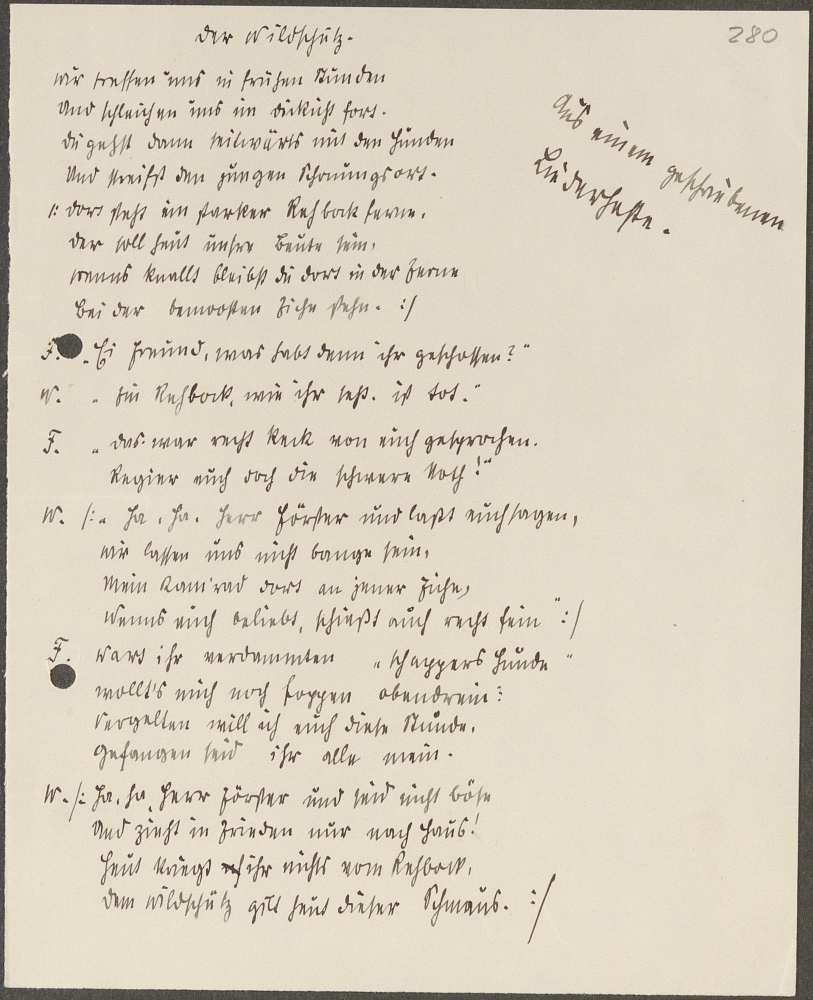 Der Wildschütz.
280
Aus einem geschriebenen
Liederhefte.
Wir treffen uns in frühen Stunden
Und schleichen uns im Dickicht fort.
Du gehst dann seitwärts mit den Hunden
Und streifst den jungen Schonungsort.
/: Dort steht ein starker Rehbock ferne,
Der soll heut unsre Beute sein,
wenns knallt bleibst du dort in der Ferne
Bei der bemoosten Eiche stehn. :/
F. „Ei Freund, was habt denn ihr geschossen?"
W. „ Ein Rehbock, wie ihr seht. ist tot."
F. „ das war recht keck von euch gesprochen.
Regier euch doch die schwere Noth!"
W. /: „ Ha, ha, Herr Förster und laßt euch sagen,
wir lassen uns nicht bange sein,
Mein Kam'rad dort an jener Eiche,
Wenns euch beliebt, schießt auch recht fein" :/
F. Wart ihr verdammten „Schappers Hunde"
wollt's mich noch foppen obendrein?
Vergelten will ich euch diese Stunde,
Gefangen seid ihr alle mein.
W. /: Ha, ha, Herr Förster und seid nicht böse
Und zieht in Frieden nur nach Haus!
Heut kriegt ihr nichts vom Rehbock,
Dem Wildschütz gilt heut dieser Schmaus. :/